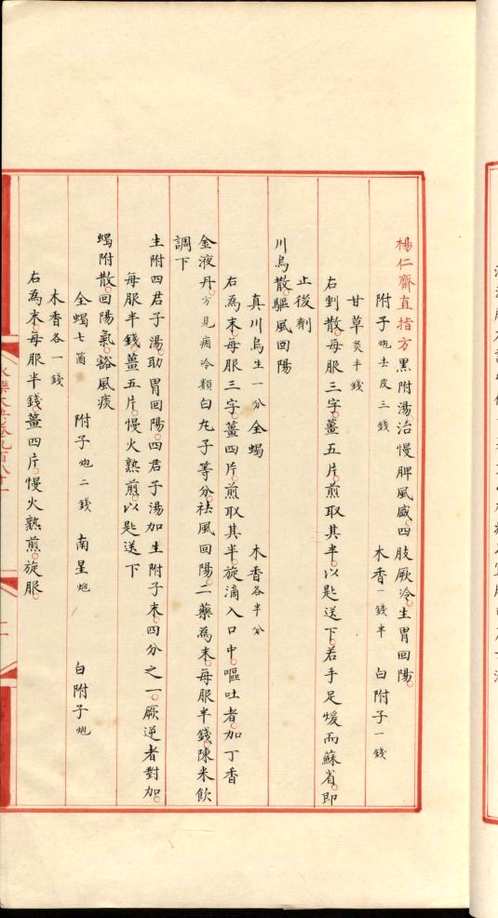 楊仁齋直指方黑附湯治慢脾風盛四肢厥冷生胃回陽
附子炮去皮三錢 木香一錢半 白附子一錢
甘草炙半錢
右剉散每服三字薑五片煎取其半以匙送下若手足煖而蘇省即
止後劑
川烏散驅風回陽
真川烏生一分 全蝎 木香各半分
右為末每服三字薑四片煎取其半旋滴入口中嘔吐者加丁香
金液丹方見痼冷類白丸子等分祛風回陽二藥為末每服半錢陳米飲
調下
生附四君子湯助胃回陽四君子湯加生附子末四分之一厥逆者對加
每服半錢薑五片慢火熟煎以匙送下
蝎附散回陽氣豁風痰
全蝎七箇 附子炮二錢 南星炮 白附子炮
木香各一錢
右為末每服半錢薑四片慢火熟煎旋服